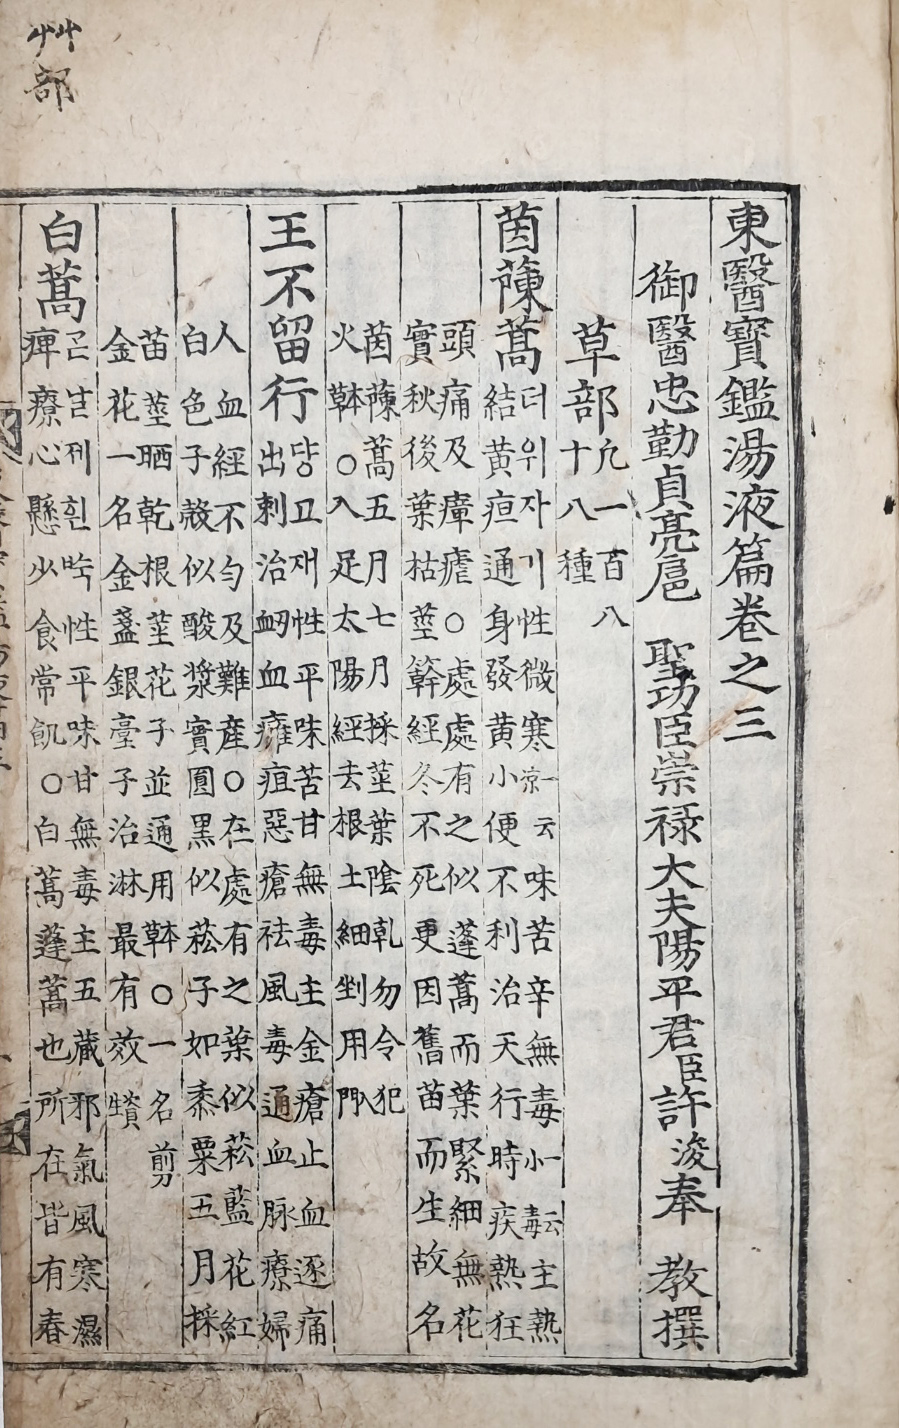 艸部
東醫寶鑑湯液篇卷之三
御醫忠勤貞亮扈 聖功臣崇祿大夫陽平君臣許浚奉 敎撰
草部凡一百八
十八種
茵蔯蒿더위자기性微寒一云凉味苦辛無毒一云小毒主熱
結黃疸通身發黃小便不利治天行時疾熱狂
頭痛及瘴瘧○處處有之似蓬蒿而葉緊細無花
實秋後葉枯莖簳經冬不死更因舊苗而生故名
茵蔯蒿五月七月採莖葉陰乾勿令犯
火本草○入足太陽經去根土細剉用入門
王不留行댱고재性平味苦甘無毒主金瘡止血逐痛
出刺治衄血癰疽惡瘡祛風毒通血脉療婦
人血經不勻及難産○在處有之葉似菘藍花紅
白色子殼似酸漿實圓黑似菘子如黍粟五月採
苗莖晒乾根莖花子並通用本草○一名剪
金花一名金盞銀臺子治淋最有效資生
白蒿근ᄇᆞᆯ게ᄒᆡᆫᄡᅮᆨ性平味甘無毒主五藏邪氣風寒濕
痺療心懸少食常飢○白蒿蓬蒿也所在皆有春